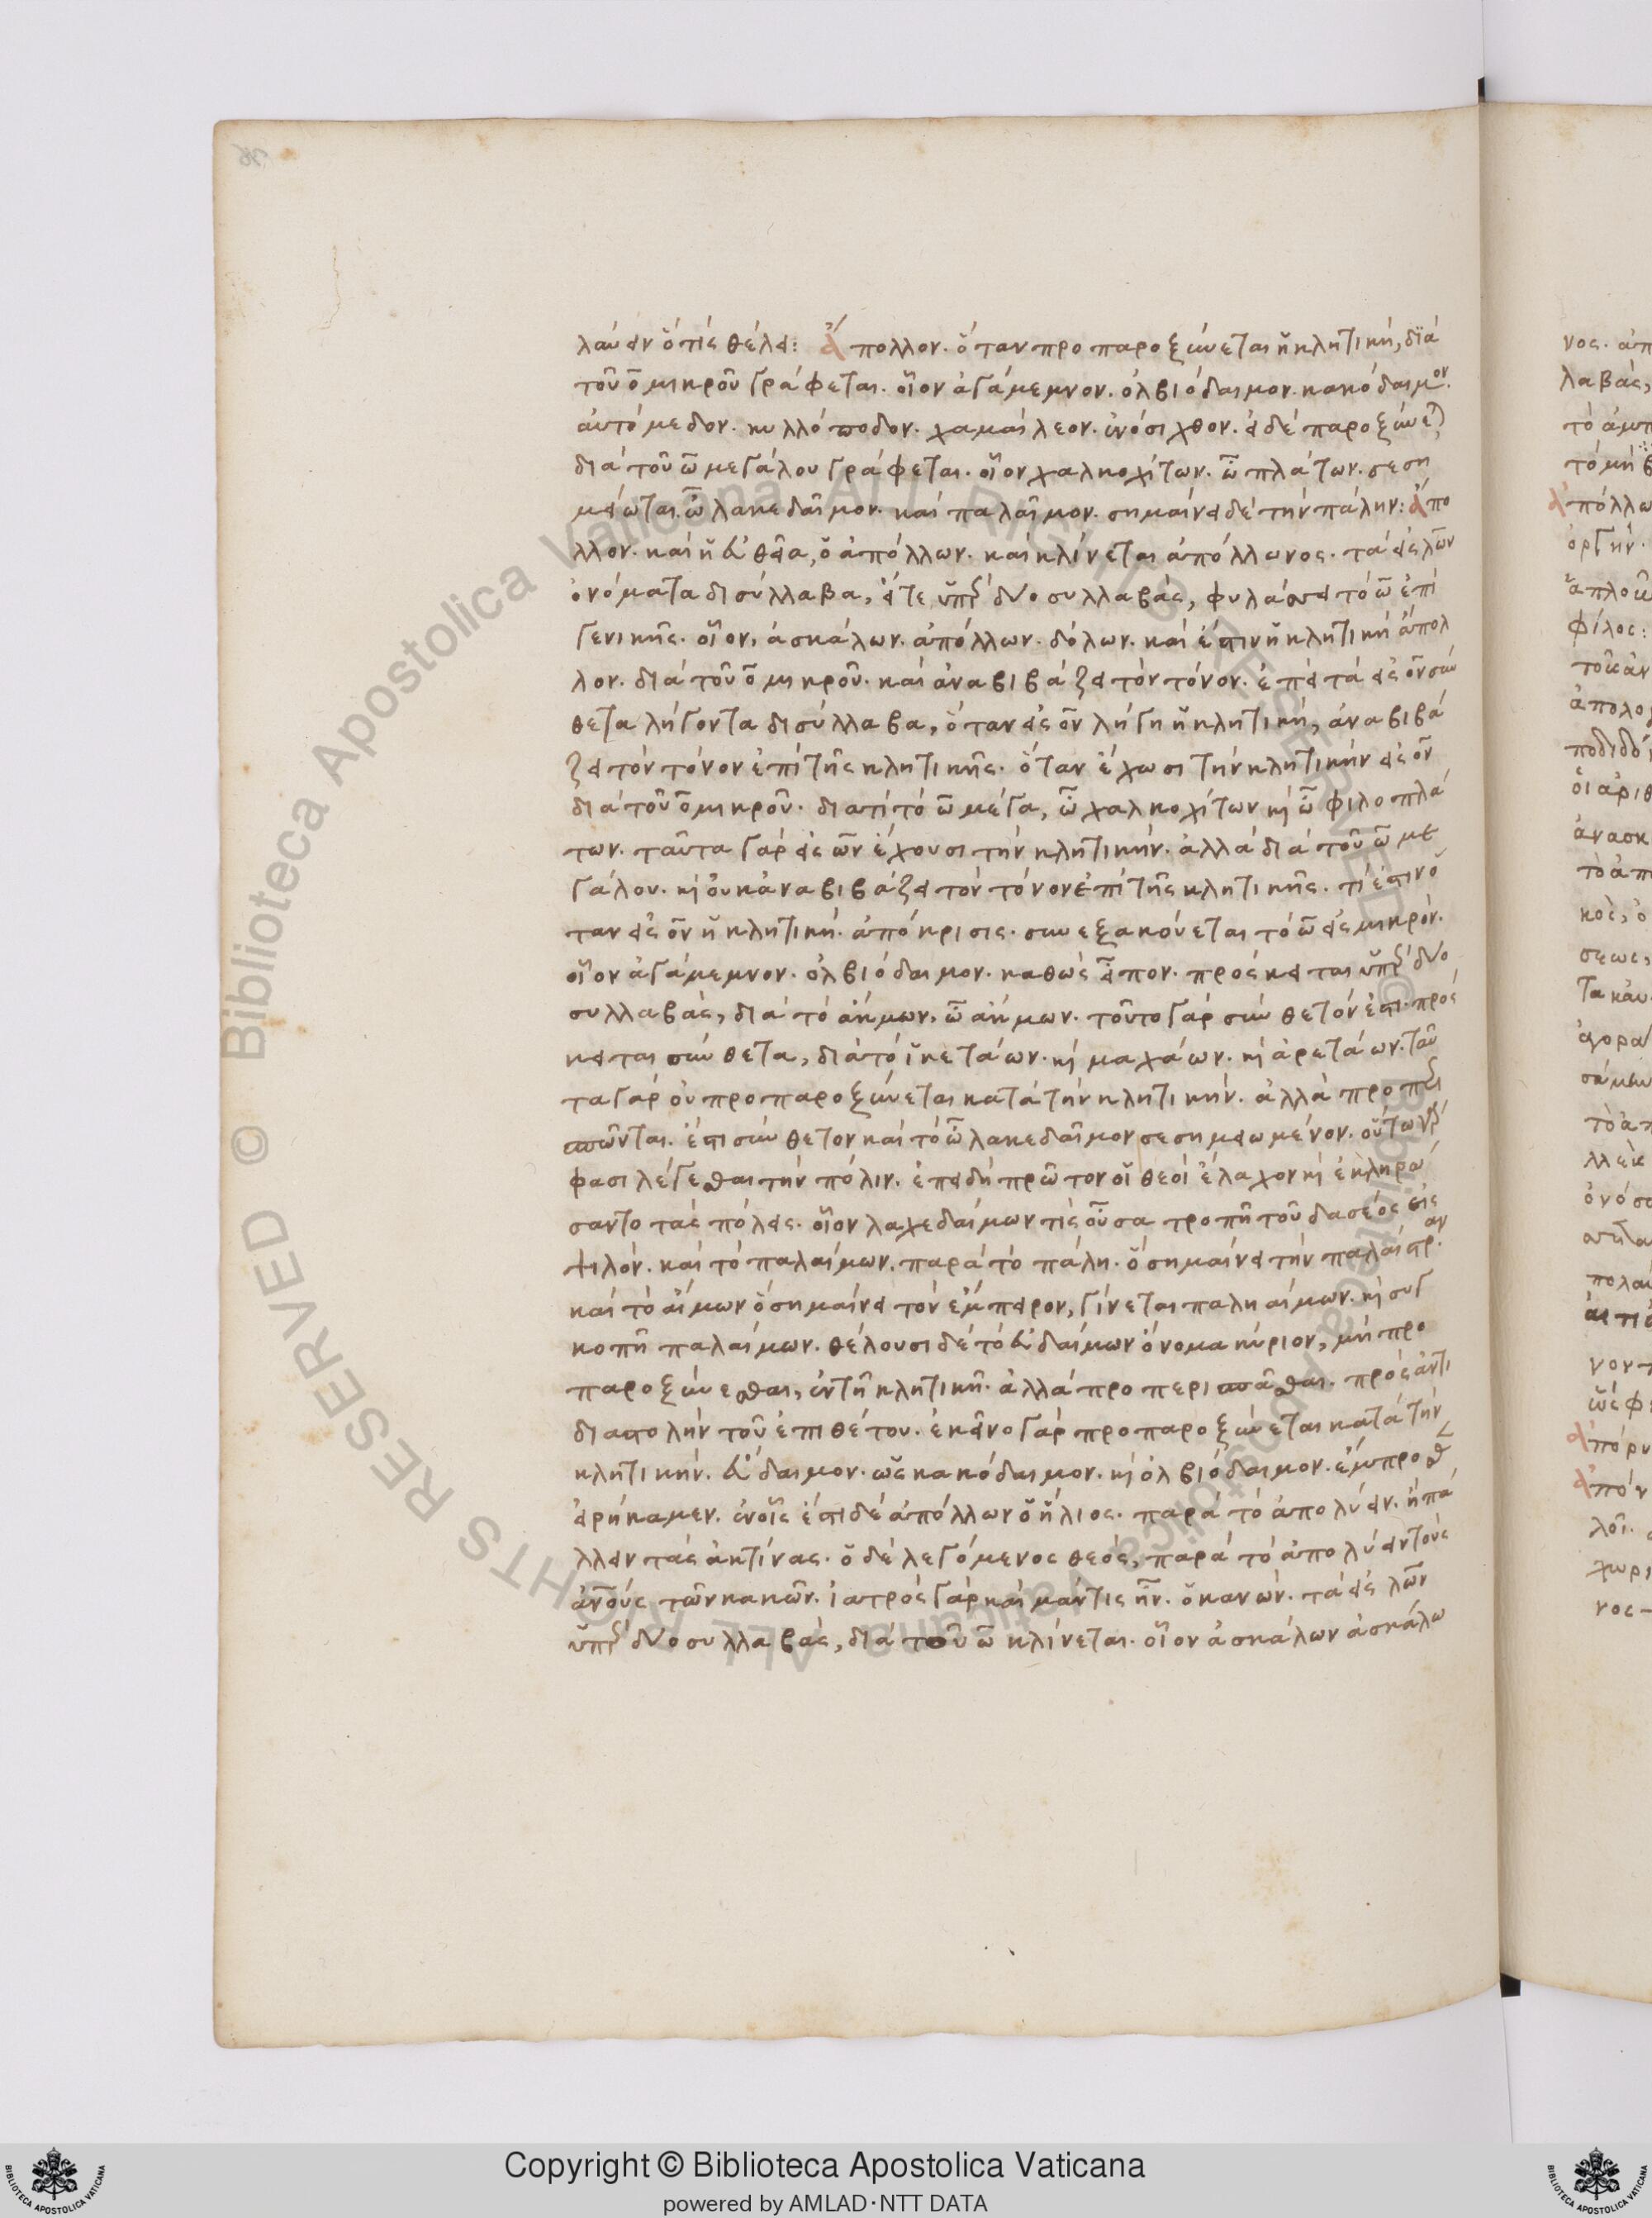 λαύειν ὅτις θέλει: Ἄπολλον. ὅταν προπαροξύνεται ἡ κλητικὴ, διὰ
τοῦ ο μικροῦ γράφεται. οἷον ἀγάμεμνον. ὀλβιόδαιμον. κακόδαιμον.
αὐτόμεδον. κυλλόποδον. χαμαίλεον. ἐνόσιχθον. εἰ δὲ παροξύνε
διὰ τοῦ ω μεγάλου γράφεται. οἷον χαλκοχίτων. ὦ πλάτων. σεση
μείωται. ὦ λακεδαῖμον. καὶ παλαῖμον. σημαίνει δὲ τὴν πάλην: ἄπο
λλον. καὶ ἡ εὐθεῖα, ὁ ἀπόλλων. καὶ κλίνεται ἀπόλλωνος. τὰ εἰς λων
ὀνόματα δισύλλαβα, εἴτε ὑπὲρ δύο συλλαβὰς, φυλάσσει τὸ ω ἐπὶ
γενικῆς. οἷον, ἀσκάλων. ἀπόλλων. δόλων. καὶ ἔστιν ἡ κλητικὴ ἄπολ
λον. διὰ τοῦ ο μικροῦ. καὶ ἀναβιβάζει τὸν τόνον. ἐπεὶ τὰ εἰς ον σύν
θετα λήγοντα δισύλλαβα, ὅταν εἰς ον λήγη ἡ κλητικὴ, ἀναβιβά
ζει τὸν τόνον ἐπὶ τῆς κλητικῆς. ὅταν ἔχωσι τὴν κλητικὴν εἰς ον
διὰ τοῦ ο μικροῦ. διατί τὸ ω μέγα, ὦ χαλκοχίτων κὶ ὦ φιλοπλά
των. ταῦτα γὰρ εἰς ων ἔχουσι τὴν κλητικήν. ἀλλὰ διὰ τοῦ ω με
γάλου. κὶ οὐκ ἀναβιβάζει τὸν τόνον ἐπὶ τῆς κλητικῆς. τί ἐστιν ὅ
ταν εἰς ον ἡ κλητική. ἀπόκρισις. συνεξακούεται τὸ ω εἰς μικρόν.
οἷον ἀγάμεμνον. ὀλβιόδαιμον. καθὼς εἶπον. πρόσκειται ὑπὲρ δύο
συλλαβὰς, διὰ τὸ αἴμων. ὦ αἴμων. τοῦτο γὰρ σύνθετόν ἐστι. πρόσ
κειται σύνθετα, διὰ τὸ ἱκετάων. κὶ μαχάων. κὶ ἀρετάων. ταῦ
τα γὰρ οὐ προπαροξύνεται κατὰ τὴν κλητικήν. ἀλλὰ προπερι
σπῶνται. ἔστι σύνθετον καὶ τὸ ὦ λακεδαῖμον σεσημειωμένον. οὕτω γάρ
φασι λέγεσθαι τὴν πόλιν. ἐπειδὴ πρῶτον οἱ θεοὶ ἔλαχον κὶ ἐκληρώ
σαντο τὰς πόλεις. οἷον λαχεδαίμων τὶς οὖσα τροπῆ τοῦ δασέος εἰς
ψιλόν. καὶ τὸ παλαίμων. παρὰ τὸ πάλη. ὃ σημαίνει τὴν παλαίστραν.
καὶ τὸ αἵμων ὃ σημαίνει τὸν ἔμπειρον, γίνεται παλη αίμων. κὶ συγ
κοπῆ παλαίμων. θέλουσι δὲ τὸ εὐδαίμων ὄνομα κύριον, μὴ προ
παροξύνεσθαι, ἐν τῆ κλητικῆ. ἀλλὰ προπερισπᾶσθαι. πρὸς ἀντι
διαστολὴν τοῦ ἐπιθέτου. ἐκεῖνο γὰρ προπαροξύνεται κατὰ τὴν
κλητικήν. εὔδαιμον. ὡς κακόδαιμον. κὶ ὀλβιόδαιμον. ἔμπροσθ
εἰρήκαμεν. ἐν οἷς ἔστι δὲ ἀπόλλων ὁ ἥλιος. παρὰ τὸ ἀπολύειν. ἢ πά
λλειν τὰς ἀκτίνας. ὁ δὲ λεγόμενος θεὸς, παρὰ τὸ ἀπολύειν τοὺς
ἀνους τῶν κακῶν. ἰατρὸς γὰρ καὶ μάντις ἦν. ὁ κανών. τὰ εἰς λων
ὑπὲρ δύο συλλαβὰς, διὰ τοῦ ω κλίνεται. οἷον ἀσκάλων ἀσκάλω